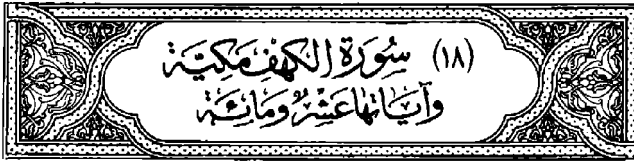 (١٨) سُورَة الكهفِ مَكيَّة
وَآيَاتهَا عَشْرٌ وَمَائَة